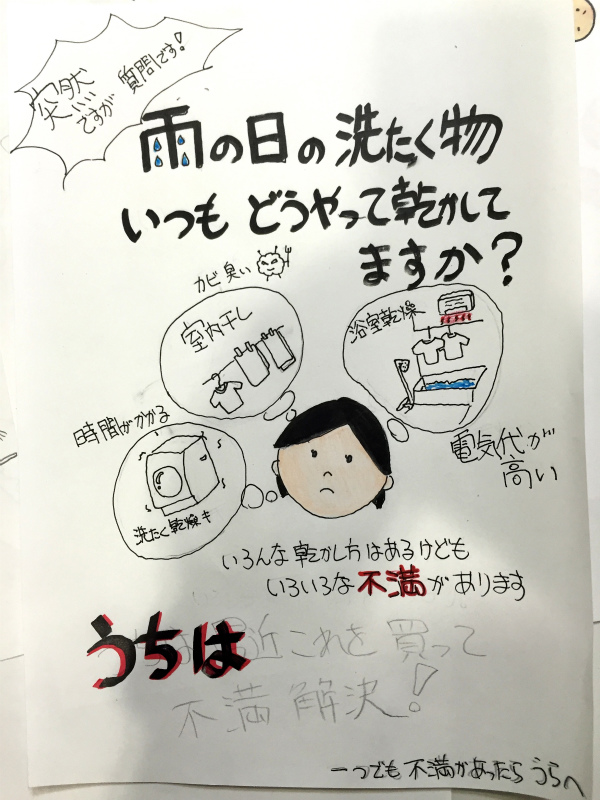 突然
ですが 質問です!
雨の日の洗たく物
いつも どうやって乾かして
ますか?
カビ臭い
室内干し
浴室乾燥
時間がかかる
洗たく乾燥キ
電気代が
高い
いろんな乾かし方はあるけども
いろいろな不満があります
うちは
近これを買って
不満解決!
一つでも不満があったらうらへ